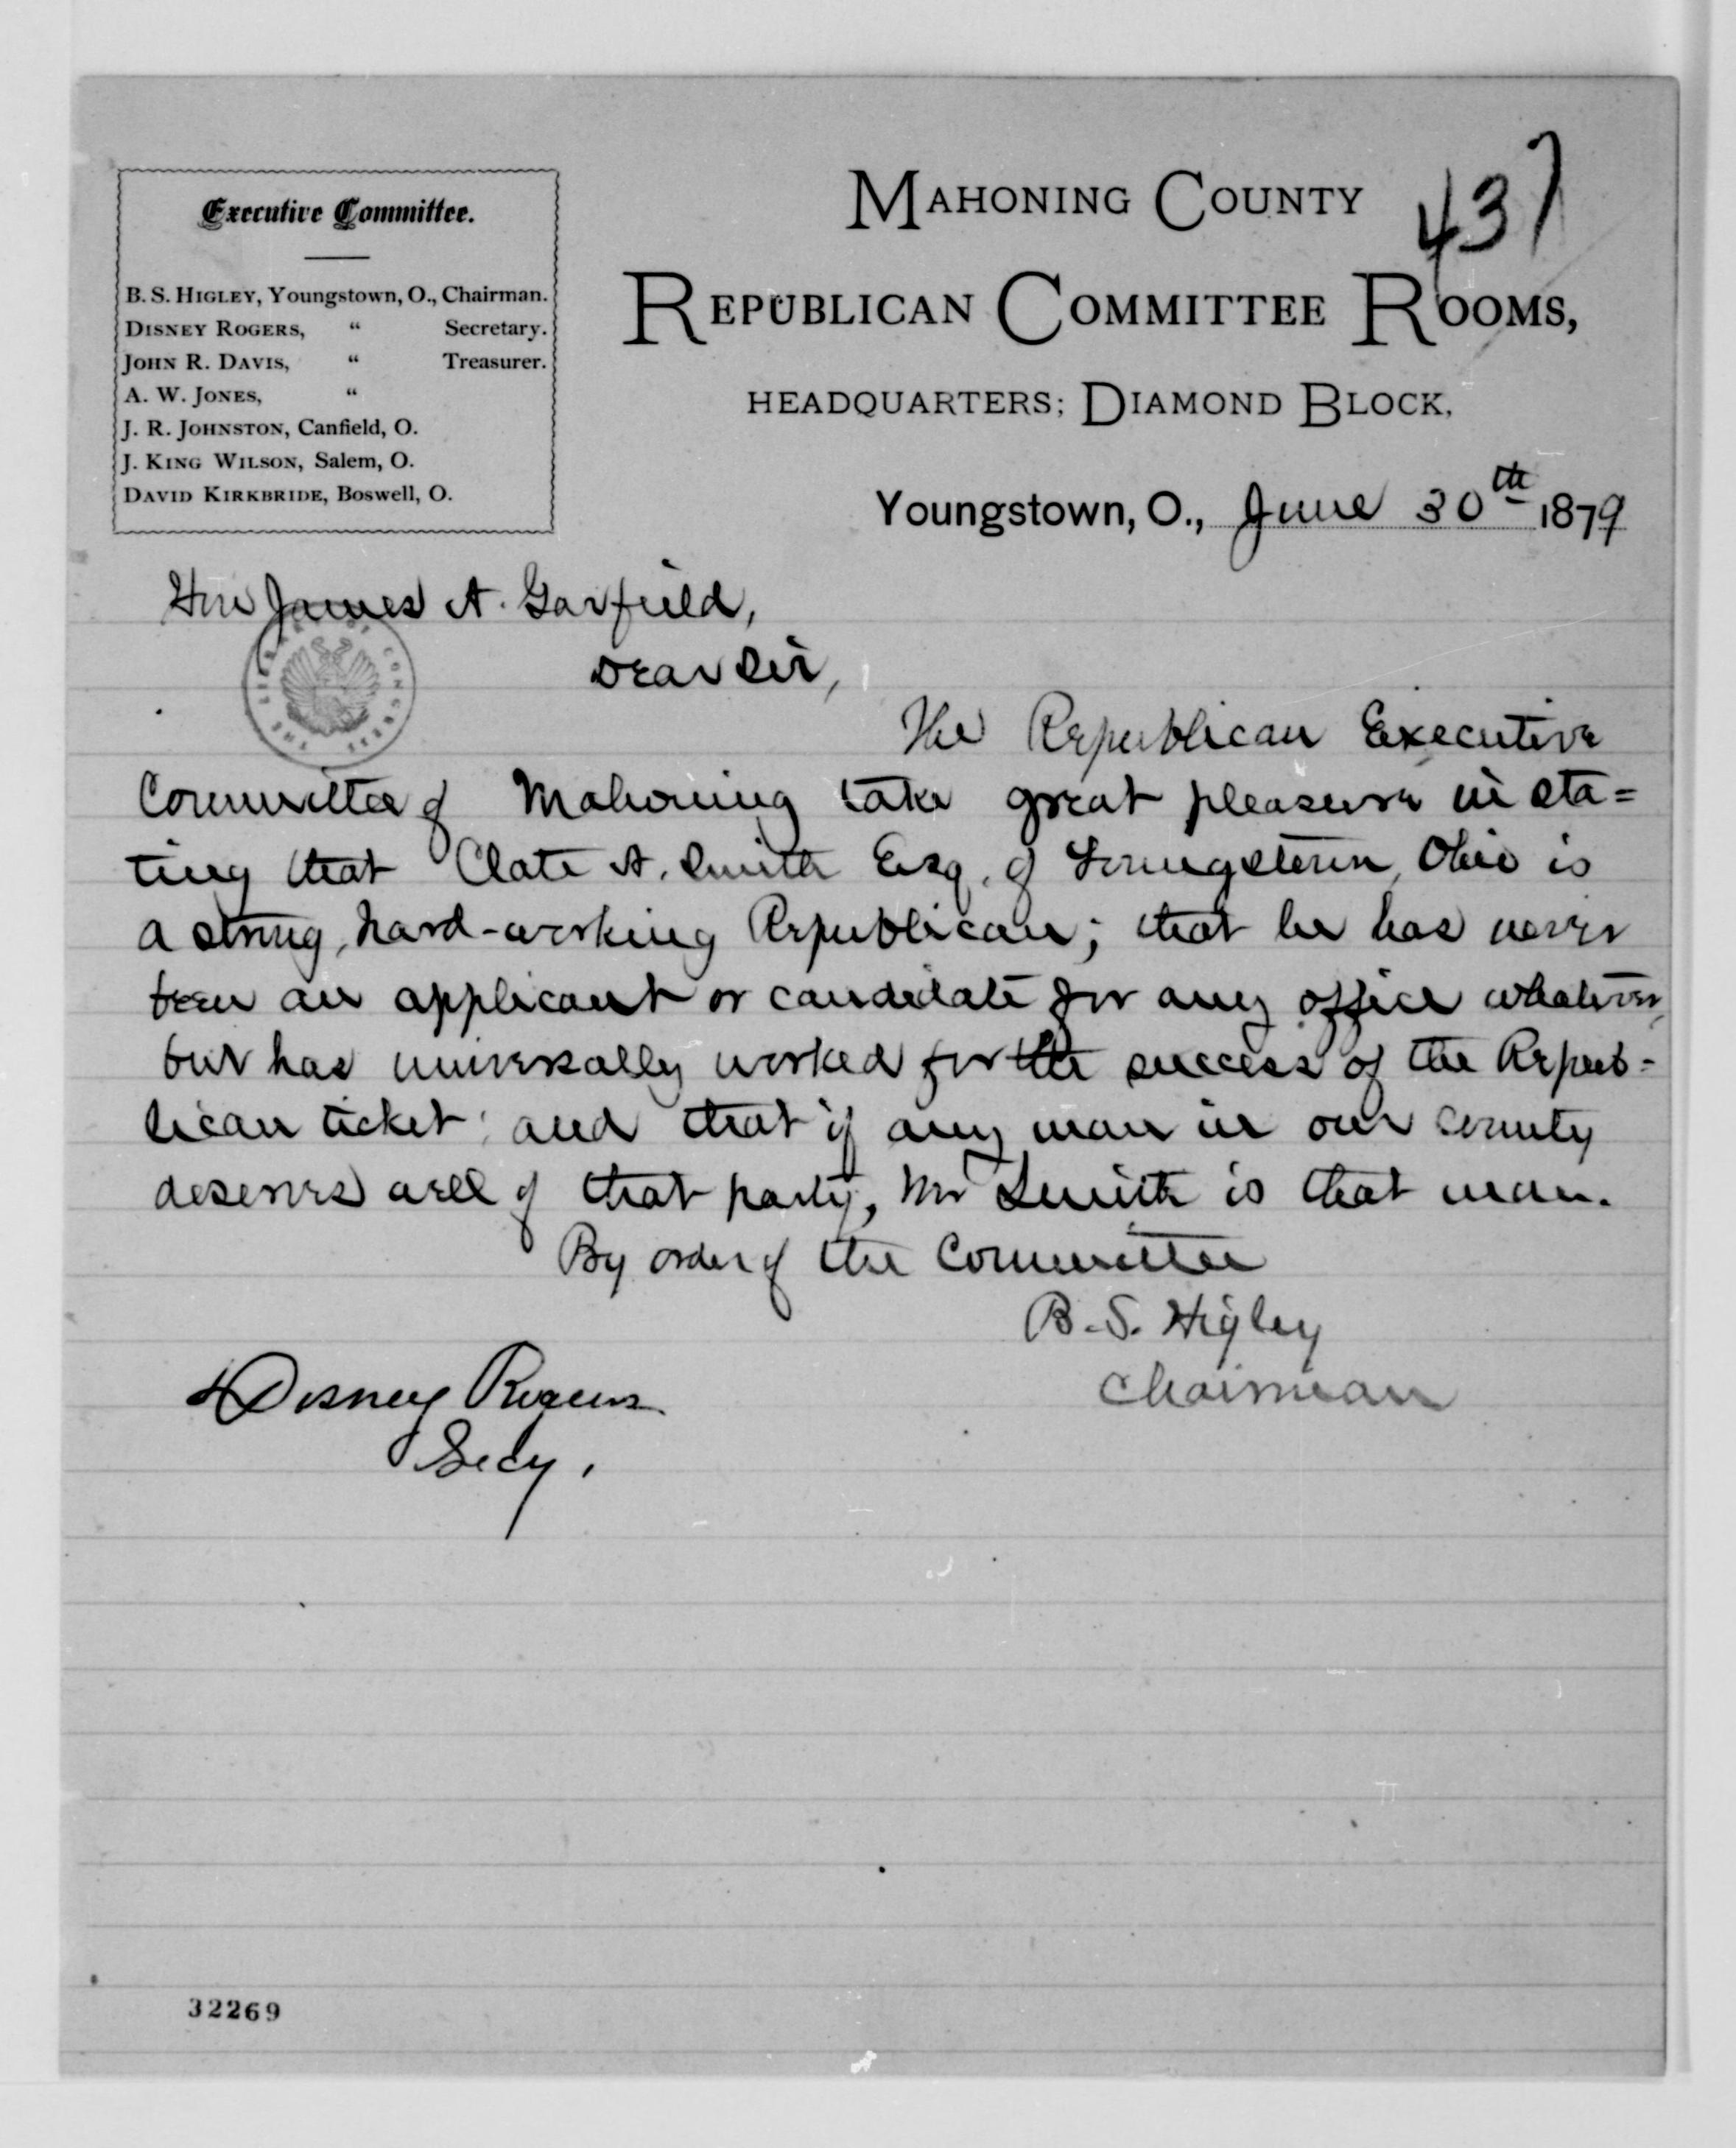 437
Executive Committee.
B. S. HIGLEY, Youngstown, O., Chairman.
DISNEY ROGERS, " Secretary.
JOHN R. DAVIS, " Treasurer.
A. W. JONES, "
J. R. JOHNSTON, Canfield, O.
J. KING WILSON, Salem, O.
DAVID KIRKBRIDE, Boswell, O.
MAHONING COUNTY
REPUBLICAN COMMITTEE ROOMS,
HEADQUARTERS; DIAMOND BLOCK,
Youngstown, O., June 30th 1879
Hon James A. Garfield,
Dear Sir,
THE LIBRARY OF CONGRESS
The Republican Executive
Committee of Mahoning take great pleasure in sta=
ting that Clate A. Smith Esq. of Youngstown, Ohio is
a strong, hard-working Republican; that he has never
been an applicant or candidate for any office whatever,
but has universally worked for the success of the Repub=
lican ticket; and that if any man in our county
deserves well of that party, Mr Smith is that man.
By order of the Committee
B. S. Higley
Chairman
Disney Rogers
Secy.
32269